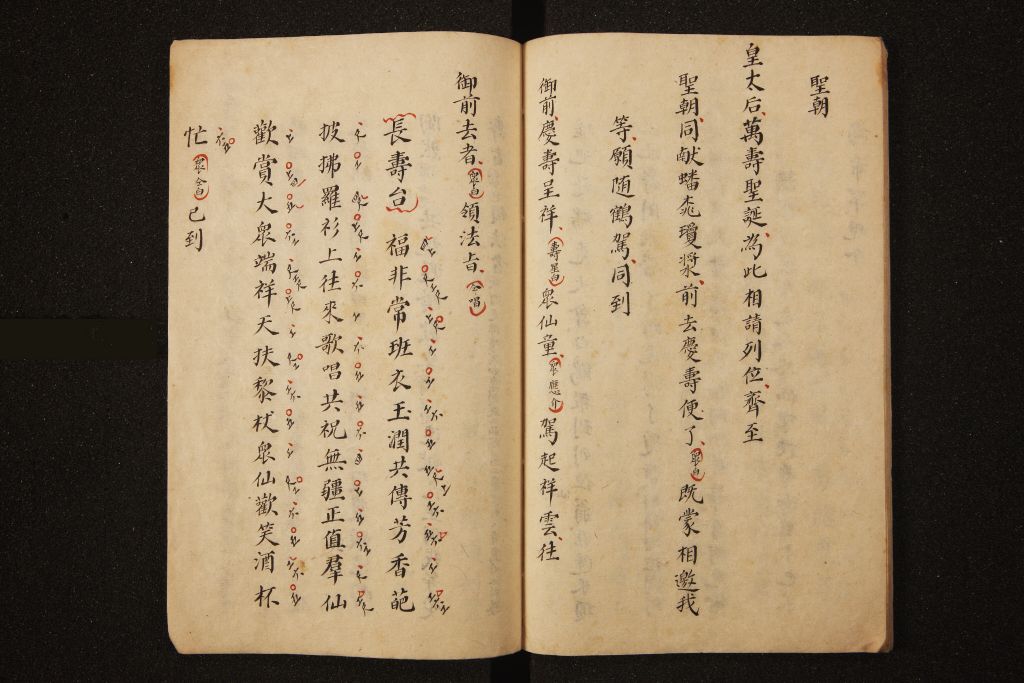 聖朝
皇太后萬壽聖誕為此相請列位齊至
聖朝同献蟠桃瓊漿前去慶壽便了眾白既蒙相邀我
等願随鶴駕同到
御前慶壽呈祥壽星白眾仙童眾應介駕起祥雲往
御前去者眾白領法旨合唱
長壽台 福非常班衣玉潤共傳芳香葩
披拂羅衫上往來歌唱共祝無疆正值羣仙
歡賞大眾端祥天扶黎杖眾仙歡笑酒杯
忙眾仝白已到